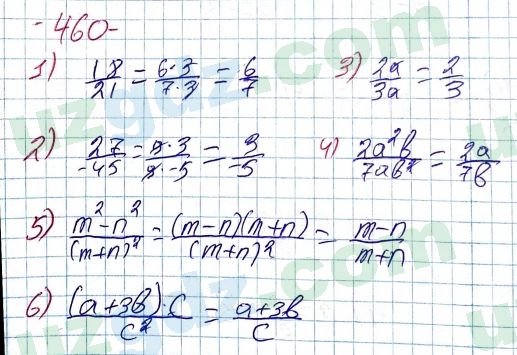 -460-
1) 18/21 = 6·3/7·3 = 6/7
3) 2a/3a = 2/3
2) 27/-45 = 9·3/9·-5 = 3/-5
4) 2a²b/7ab² = 2a/7b
5) m²-n²/(m+n)² = (m-n)(m+n)/(m+n)² = m-n/m+n
6) (a+3b)·c/c² = a+3b/c
uzgdz.com